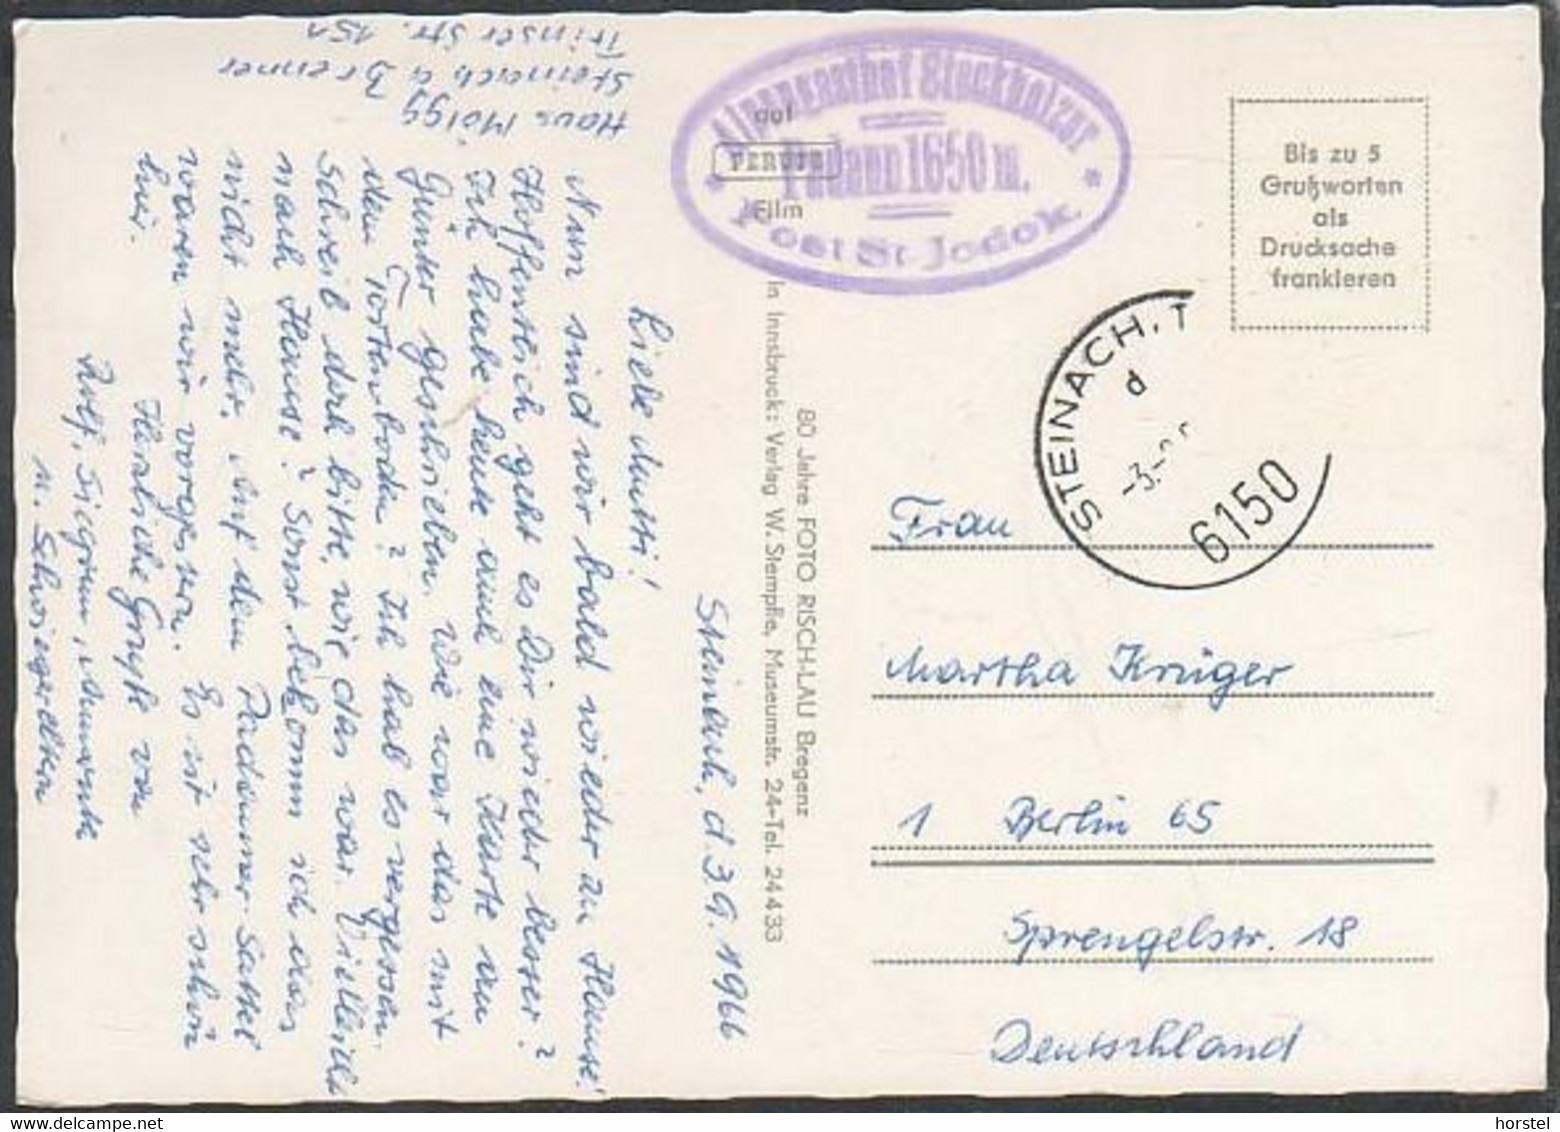 Haus Mölgg
Steinach a Brenner
Trinser Str. 151
Steinach, d. 3.9.1966
Liebe Mutti!
Nun sind wir bald wieder zu Hause!
Hoffentlich geht es Dir wieder besser?
Ich habe heute auch eine Karte an
Günter geschrieben. Wie war das mit
den Tortenboden? Ich hab es vergessen.
Schreib doch bitte, wie das war. Vielleicht
nach Hause? Sonst bekomm ich das
nicht mehr. Auf dem Padauner-Sattel
waren wir vorgestern. Es ist sehr schön
hier.
Herzliche Grüße von
Rolf, Siegrun,
u. Schwiegereltern
Alpengasthof Stockholzer
Padaun 1650 m.
Post St. Jodok.
auf
PERUTZ
Film
80 Jahre FOTO RISCH-LAU Bregenz
In Innsbruck: Verlag W. Stempfle, Museumstr. 24-Tel. 24433
Bis zu 5
Grußworten
als
Drucksache
frankieren
STEINACH, T
d
-3.-
6150
Frau
Martha Krüger
1 Berlin 65
Sprengelstr. 18
Deutschland
horstel
© Delcampe.net